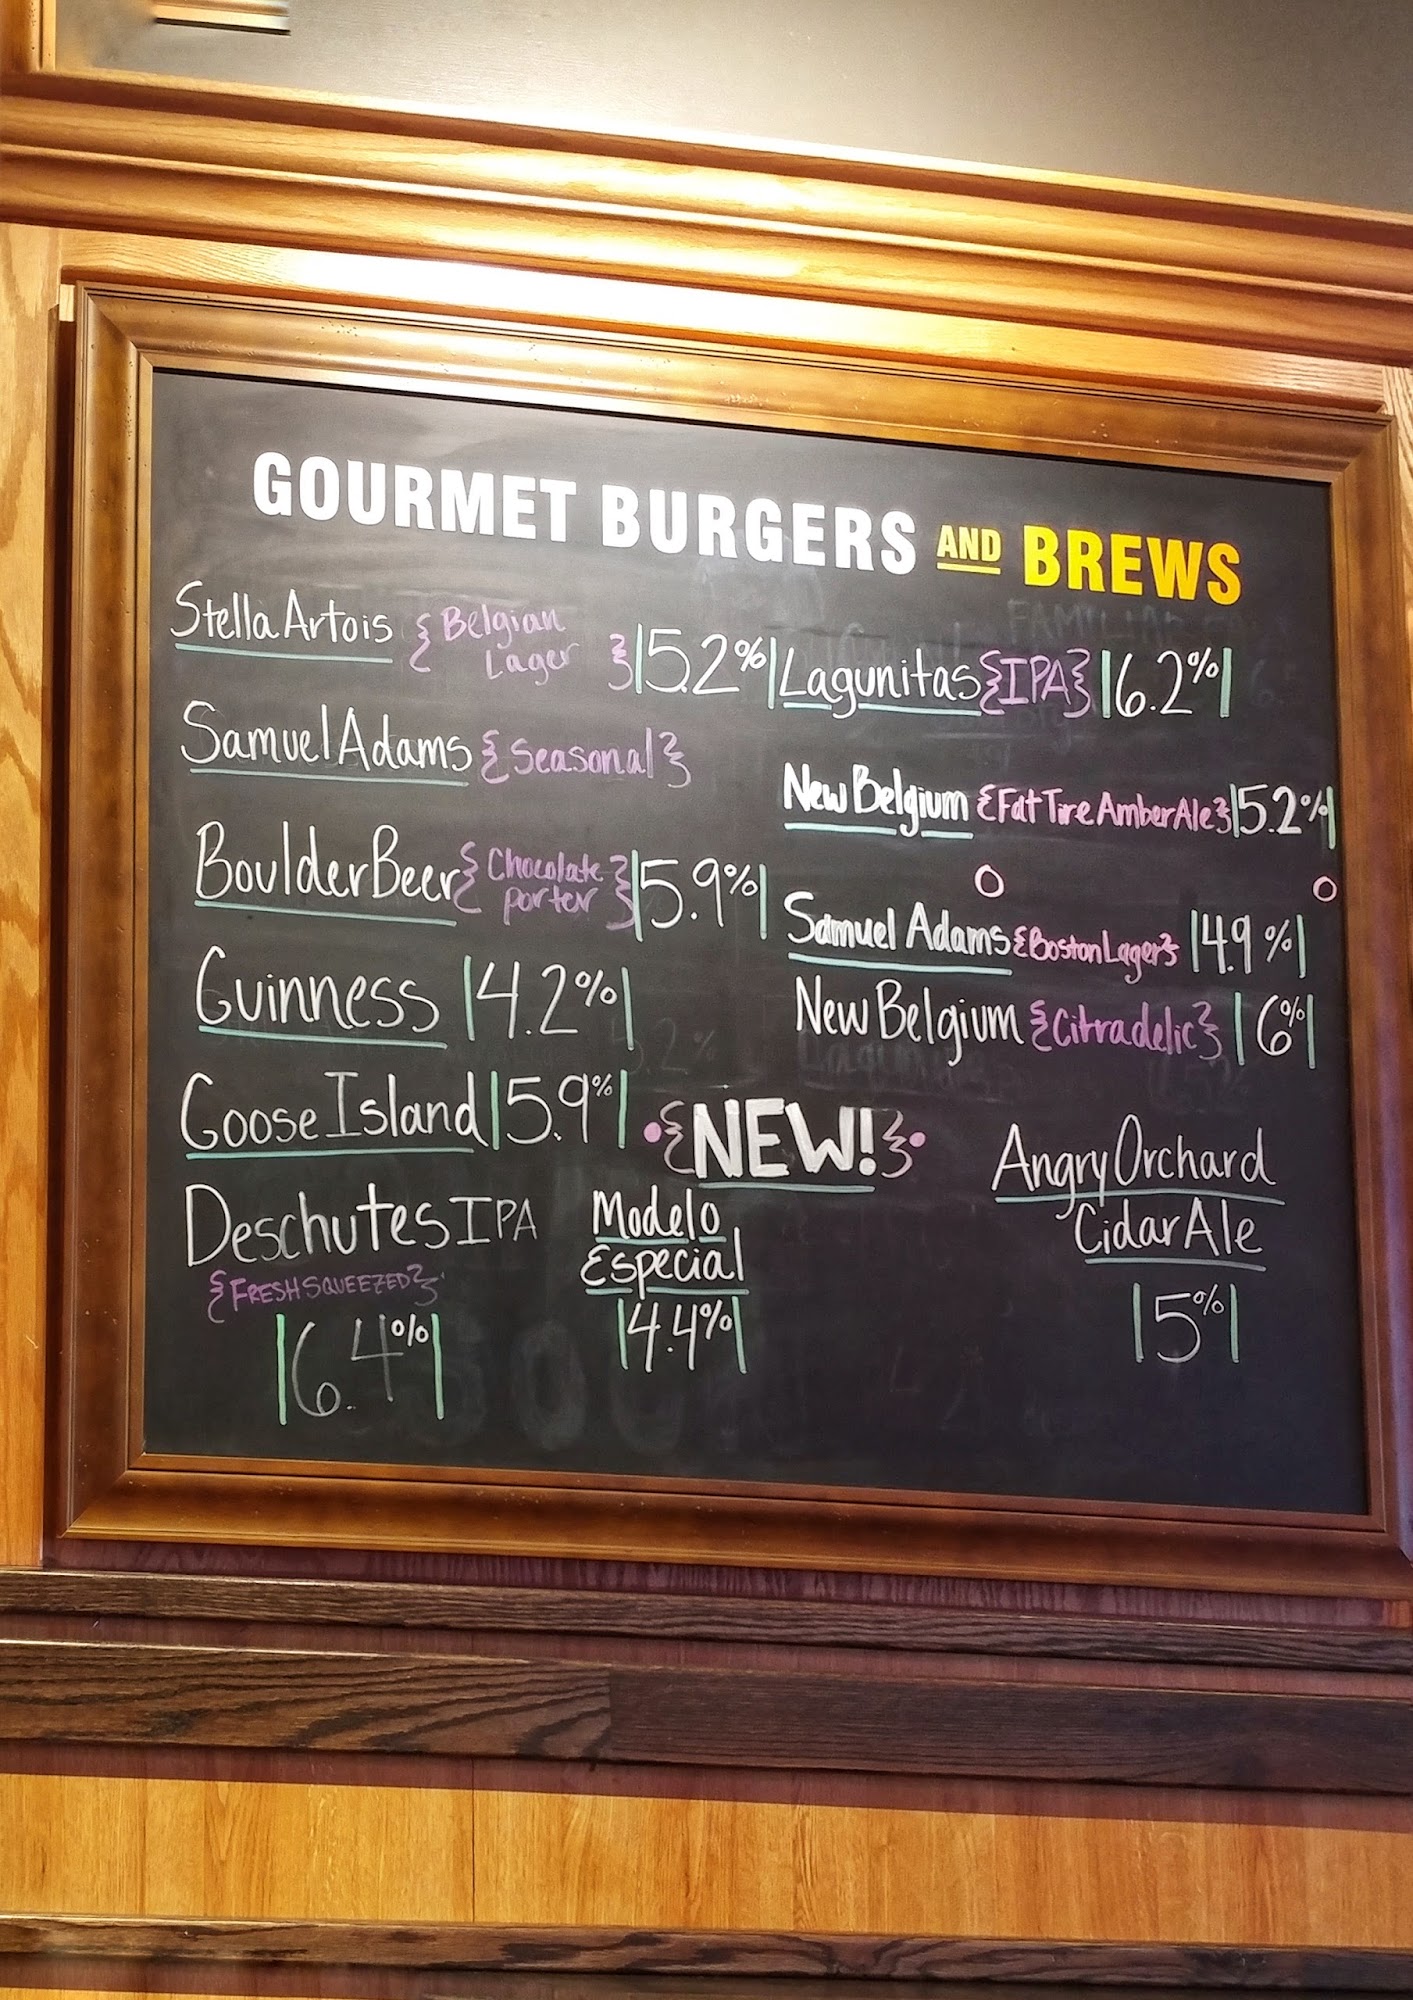 GOURMET BURGERS AND BREWS
Stella Artois {Belgian
Lager} |5.2%|
Samuel Adams {Seasonal}
Boulder Beer {Chocolate
porter} |5.9%|
Guinness |4.2%|
Goose Island |5.9%|
Deschutes IPA
{FRESH SQUEEZED}
|6.4%|
Lagunitas {IPA} |6.2%|
New Belgium {Fat Tire Amber Ale} |5.2%|
Samuel Adams {Boston Lager} |4.9%|
New Belgium {Citradelic} |6%|
{NEW!}
Modelo
Especial
|4.4%|
Angry Orchard
Cidar Ale
|5%|